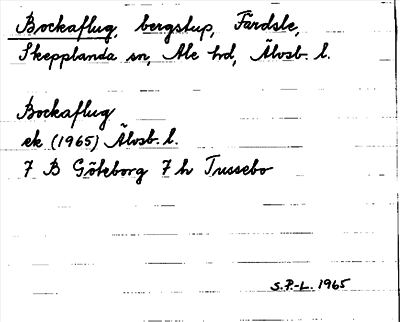 Bockaflug, bergstup, Färdsle,
Skepplanda sn, Ale hd, Älvsb. l.
Bockaflug
ek (1965) Älvsb. l.
7 B Göteborg 7 h Tussebo
S.P.-L. 1965